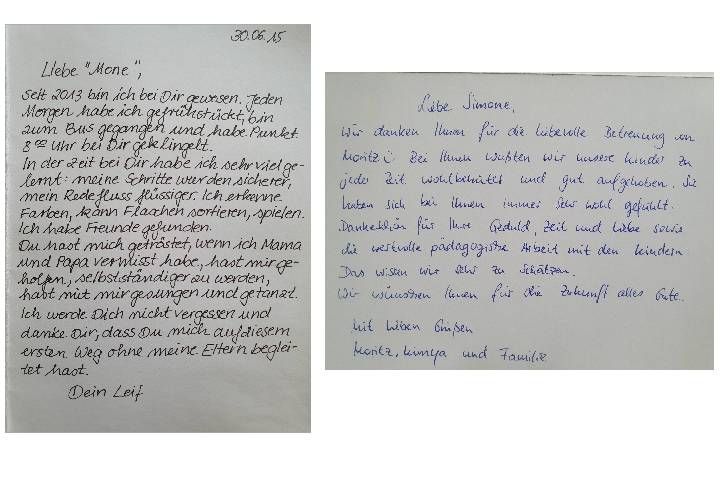 30.06.15
Liebe "Mone",
Seit 2013 bin ich bei Dir gewesen. Jeden
Morgen habe ich gefrühstückt, bin
zum Bus gegangen und habe Punkt
8 00 Uhr bei Dir geklingelt.
In der Zeit bei Dir habe ich sehr viel ge-
lernt: meine Schritte wurden sicherer,
mein Redefluss flüssiger. Ich erkenne
Farben, kann Flaschen sortieren, spielen.
Ich habe Freunde gefunden.
Du hast mich getröstet, wenn ich Mama
und Papa vermisst habe, hast mir ge-
holfen, selbstständiger zu werden,
habt mit mir gesungen und getanzt.
Ich werde Dich nicht vergessen und
danke Dir, dass Du mich auf diesem
ersten Weg ohne meine Eltern beglei-
tet hast.
Dein Leif
Liebe Simone,
Wir danken Ihnen für die liebevolle Betreuung von
Moritz! Bei Ihnen wußten wir unsere Kinder zu
jeder Zeit wohlbehütet und gut aufgehoben. Sie
haben sich bei Ihnen immer sehr wohl gefühlt.
Dankeschön für Ihre Geduld, Zeit und Liebe sowie
die wertvolle pädagogische Arbeit mit den Kindern.
Das wissen wir sehr zu schätzen.
Wir wünschen Ihnen für die Zukunft alles Gute.
Mit lieben Grüßen
Moritz, und Familie